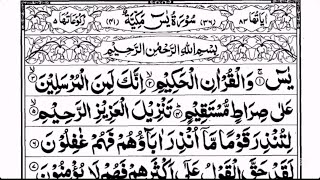 اٰيَاتُهَا ٨٣ (٣٦) سُوْرَةُ يٰسٓ مَكِّيَّةٌ (٤١) رُكُوْعَاتُهَا ٥
بِسْمِ اللّٰهِ الرَّحْمٰنِ الرَّحِيْمِ
يٰسٓ ۚ﴿۱﴾ وَالْقُرْاٰنِ الْحَكِيْمِ ۙ﴿۲﴾ اِنَّكَ لَمِنَ الْمُرْسَلِيْنَ ۙ﴿۳﴾
عَلٰى صِرَاطٍ مُّسْتَقِيْمٍ ؕ﴿۴﴾ تَنْزِيْلَ الْعَزِيْزِ الرَّحِيْمِ ۙ﴿۵﴾
لِتُنْذِرَ قَوْمًا مَّاۤ اُنْذِرَ اٰبَآؤُهُمْ فَهُمْ غٰفِلُوْنَ ﴿۶﴾
لَقَدْ حَقَّ الْقَوْلُ عَلٰۤى اَكْثَرِهِمْ فَهُمْ لَا يُؤْمِنُوْنَ ﴿۷﴾